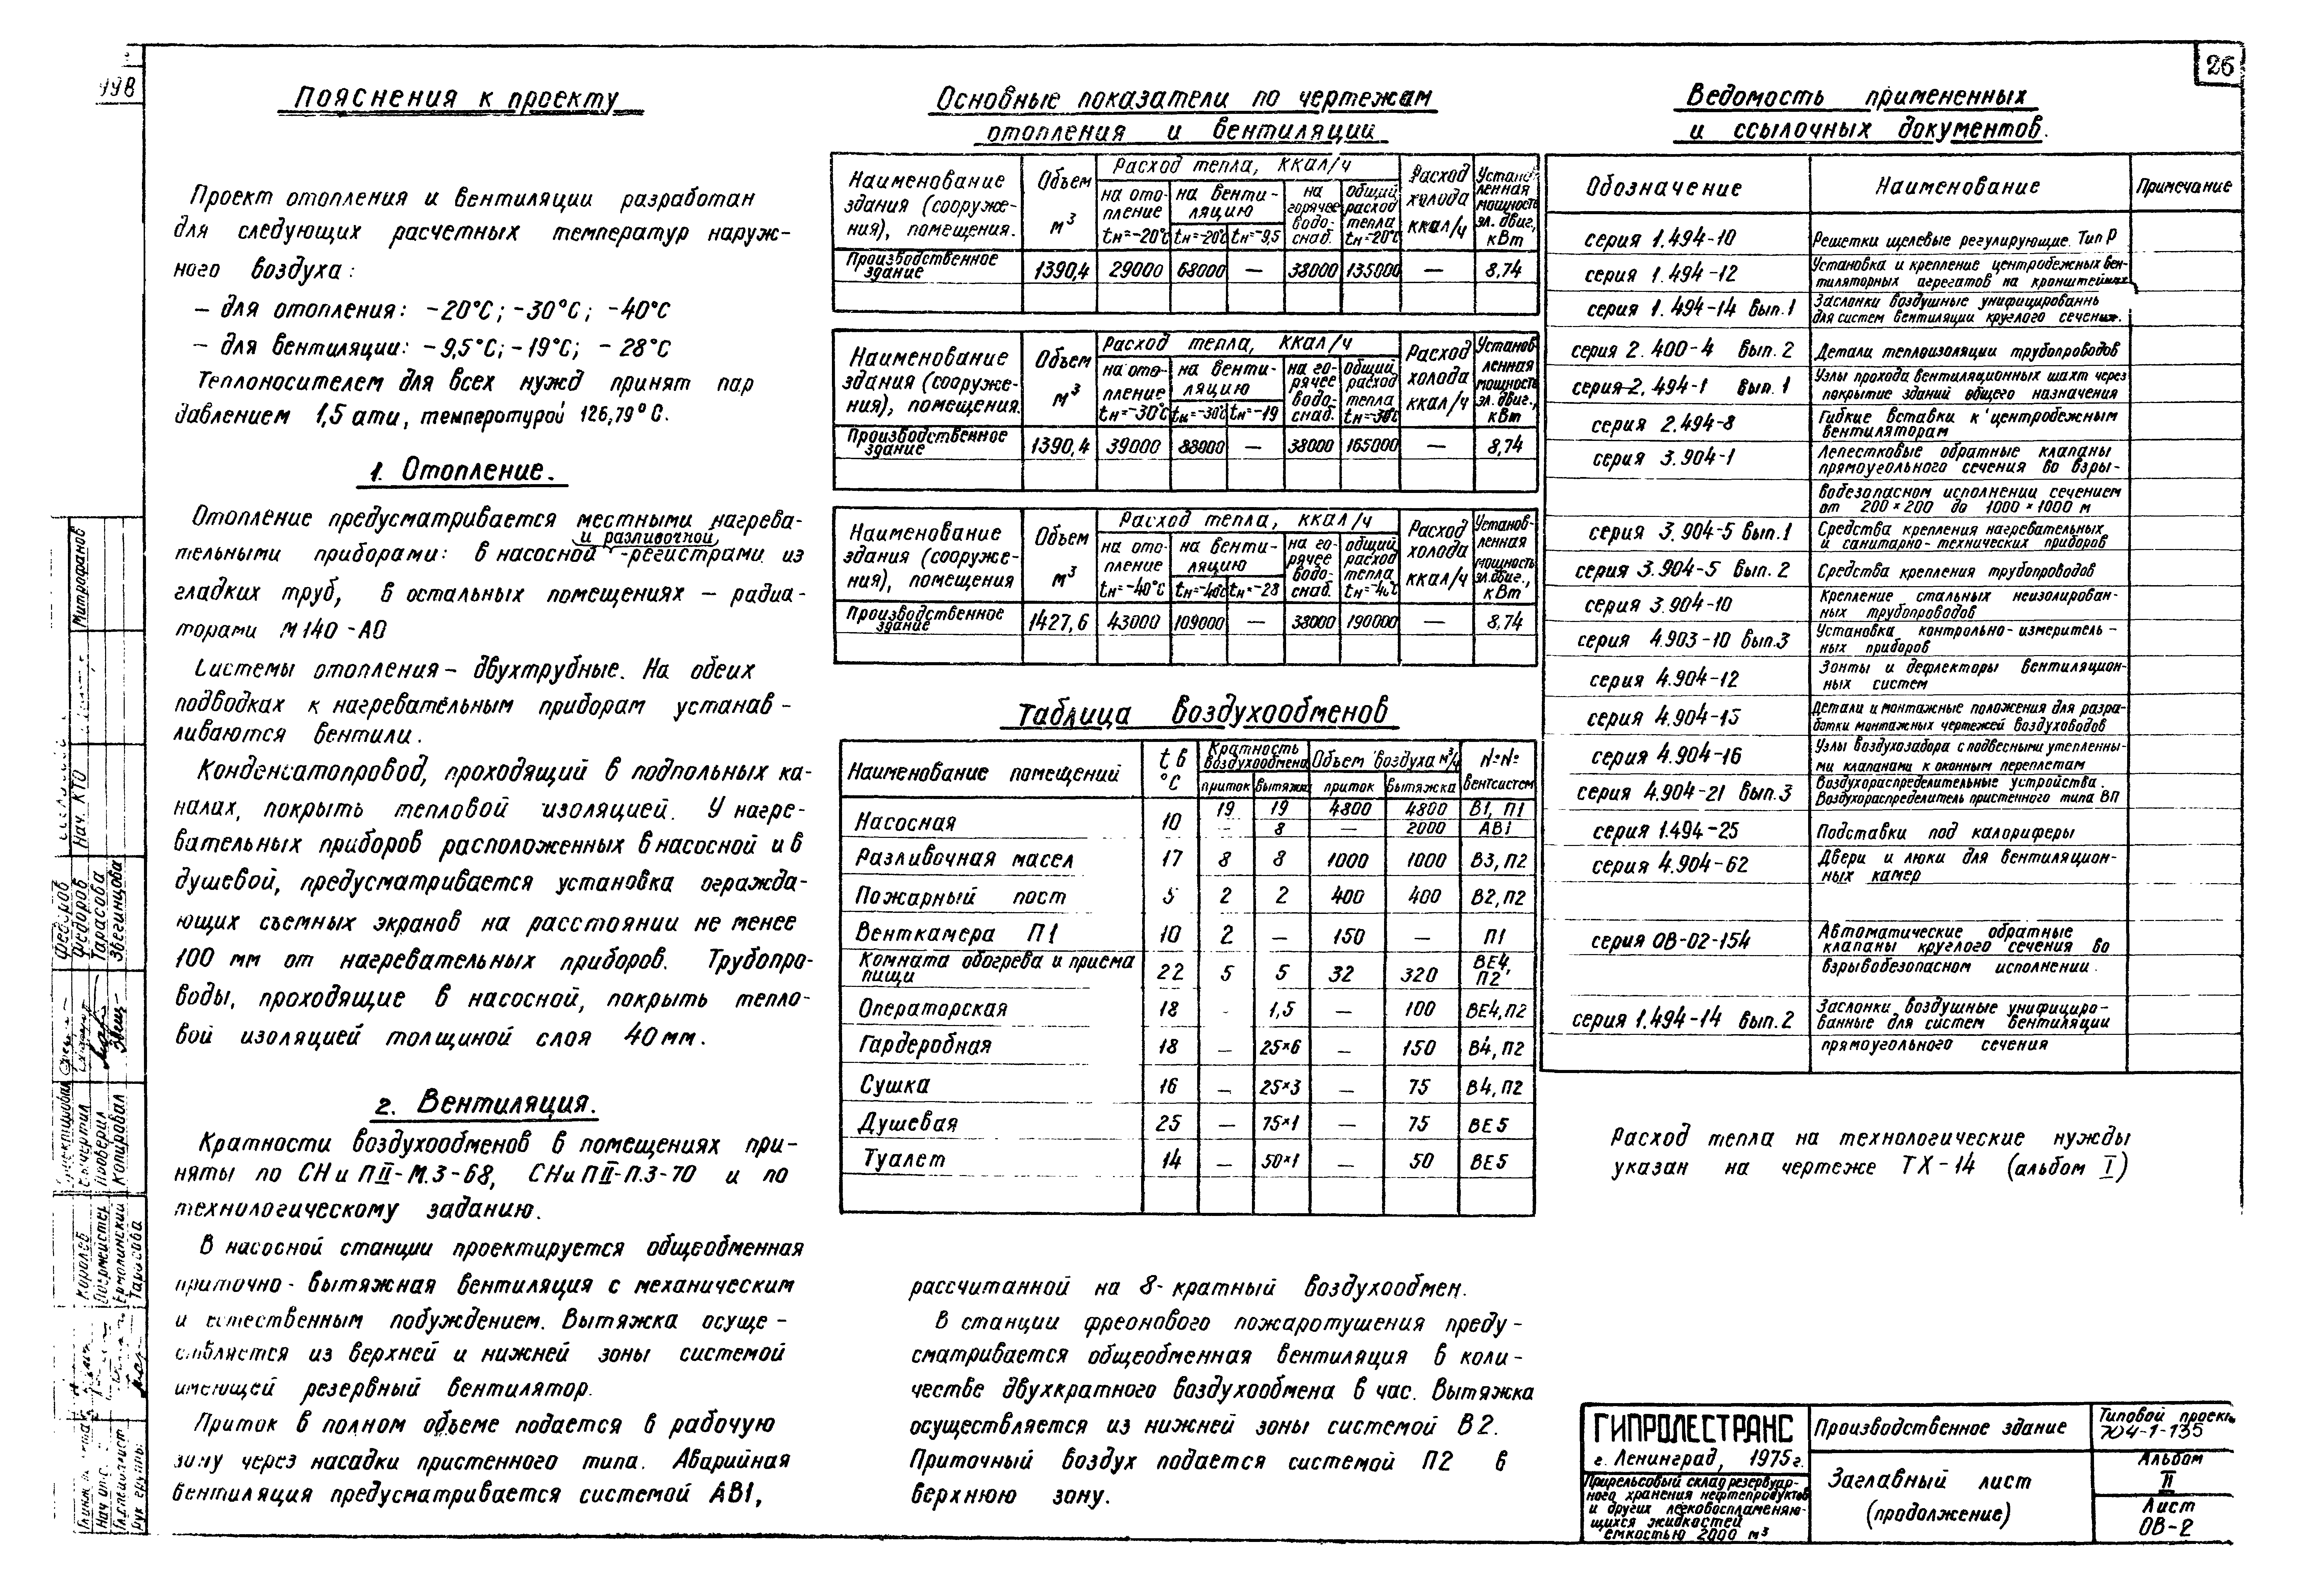 26
998
Пояснения к проекту
Проект отопления и вентиляции разработан
для следующих расчетных температур наруж-
ного воздуха:
– для отопления: -20°С; -30°С; -40°С
– для вентиляции: -9,5°С; -19°С; -28°С
Теплоносителем для всех нужд принят пар
давлением 1,5 ати, температурой 126,79°С.
1. Отопление.
Отопление предусматривается местными нагрева-
и разливочной
тельными приборами: в насосной -регистрами из
гладких труб, в остальных помещениях – радиа-
торами М140-АО
Системы отопления – двухтрубные. На обеих
подводках к нагревательным приборам устанав-
ливаются вентили.
Конденсатопровод, проходящий в подпольных ка-
налах, покрыть тепловой изоляцией. У нагре-
вательных приборов расположенных в насосной и в
душевой, предусматривается установка огражда-
ющих съемных экранов на расстоянии не менее
100 мм от нагревательных приборов. Трубопро-
воды, проходящие в насосной, покрыть тепло-
вой изоляцией толщиной слоя 40 мм.
2. Вентиляция.
Кратности воздухообменов в помещениях при-
няты по СНиП II-М.3-68, СНиП II-П.3-70 и по
технологическому заданию.
В насосной станции проектируется общеобменная
приточно-вытяжная вентиляция с механическим
и естественным побуждением. Вытяжка осуще-
ствляется из верхней и нижней зоны системой
имеющей резервный вентилятор.
Приток в полном объеме подается в рабочую
зону через насадки пристенного типа. Аварийная
вентиляция предусматривается системой АВ1,
Основные показатели по чертежам
отопления и вентиляции
Наименование здания (сооруже-ния), помещения. Объем м³ Расход тепла, ККАЛ/Ч Расход холода ККАЛ/Ч Установленная мощность эл. двиг., кВт
на ото-пление tн=-20°С на венти-ляцию tн=-20°С tн=-9,5 на горячее водо-снаб. общий расход тепла tн=-20°С
Производственное здание 1390,4 29000 68000 — 38000 135000 — 8,74
Наименование здания (сооруже-ния), помещения. Объем м³ Расход тепла, ККАЛ/Ч Расход холода ККАЛ/Ч Установ-ленная мощность эл. двиг., кВт
на ото-пление tн=-30°С на венти-ляцию tн=-30°С tн=-19 на го-рячее водо-снаб. общий расход тепла tн=-30°С
Производственное здание 1390,4 39000 88000 — 38000 165000 — 8,74
Наименование здания (сооруже-ния), помещения Объем м³ Расход тепла, ККАЛ/Ч Расход холода ККАЛ/Ч Установ-ленная мощность эл. двиг., кВт
на ото-пление tн=-40°С на венти-ляцию tн=-40°С tн=-28 на го-рячее водо-снаб. общий расход тепла tн=-40°С
Производственное здание 1427,6 43000 109000 — 38000 190000 — 8,74
Таблица воздухообменов
Наименование помещений t в °С Кратность воздухообмена Объем воздуха м³/ч №№ вентсистем
приток вытяжка приток вытяжка
Насосная 10 19 19 4800 4800 В1, П1
– 8 — 2000 АВ1
Разливочная масел 17 8 8 1000 1000 В3, П2
Пожарный пост 5 2 2 400 400 В2, П2
Венткамера П1 10 2 — 150 — П1
Комната обогрева и приема пищи 22 5 5 32 320 ВЕ4, П2
Операторская 18 - 1,5 — 100 ВЕ4, П2
Гардеробная 18 — 25×6 — 150 В4, П2
Сушка 16 — 25×3 — 75 В4, П2
Душевая 25 — 75×1 — 75 ВЕ5
Туалет 14 — 50×1 — 50 ВЕ5
рассчитанной на 8-кратный воздухообмен.
В станции фреонового пожаротушения преду-
сматривается общеобменная вентиляция в коли-
честве двухкратного воздухообмена в час. Вытяжка
осуществляется из нижней зоны системой В2.
Приточный воздух подается системой П2 в
верхнюю зону.
Ведомость примененных
и ссылочных документов.
Обозначение Наименование Примечание
серия 1.494-10 Решетки щелевые регулирующие. Тип Р
серия 1.494-12 Установка и крепление центробежных вен-
тиляторных агрегатов на кронштейнах
серия 1.494-14 вып.1 Заслонки воздушные унифицированнь
для систем вентиляции круглого сечения.
серия 2.400-4 вып.2 Детали теплоизоляции трубопроводов
серия 2.494-1 вып.1 Узлы прохода вентиляционных шахт через
покрытие зданий общего назначения
серия 2.494-8 Гибкие вставки к центробежным
вентиляторам
серия 3.904-1 Лепестковые обратные клапаны
прямоугольного сечения во взры-
вобезопасном исполнении сечением
от 200×200 до 1000×1000 м
серия 3.904-5 вып.1 Средства крепления нагревательных
и санитарно-технических приборов
серия 3.904-5 вып.2 Средства крепления трубопроводов
серия 3.904-10 Крепление стальных неизолирован-
ных трубопроводов
серия 4.903-10 вып.3 Установка контрольно-измеритель-
ных приборов
серия 4.904-12 Зонты и дефлекторы вентиляцион-
ных систем
серия 4.904-15 Детали и монтажные положения для разра-
ботки монтажных чертежей воздуховодов
серия 4.904-16 Узлы воздухозабора с подвесными утепленны-
ми клапанами к оконным переплетам
серия 4.904-21 вып.3 Воздухораспределительные устройства.
Воздухораспределитель пристенного типа ВП
серия 1.494-25 Подставки под калориферы
серия 4.904-62 Двери и люки для вентиляцион-
ных камер
серия ОВ-02-154 Автоматические обратные
клапаны круглого сечения во
взрывобезопасном исполнении.
серия 1.494-14 вып.2 Заслонки воздушные унифициро-
ванные для систем вентиляции
прямоугольного сечения
Расход тепла на технологические нужды
указан на чертеже ТХ-14 (альбом I)
ГИПРОЛЕСТРАНС
г. Ленинград, 1975г.
Прирельсовый склад резервуар-
ного хранения нефтепродуктов
и других легковоспламеняю-
щихся жидкостей
емкостью 2000 м³
Производственное здание
Заглавный лист
(продолжение)
Типовой проект
704-1-135
Альбом
II
Лист
ОВ-2
Митрофанов
Нач. КТО
Федоров
Федоров
Тарасова
Звегинцова
Вычертил
Проверил
Копировал
Королев
Ермолинский
Тарасова
Гл. специалист
Рук. группы